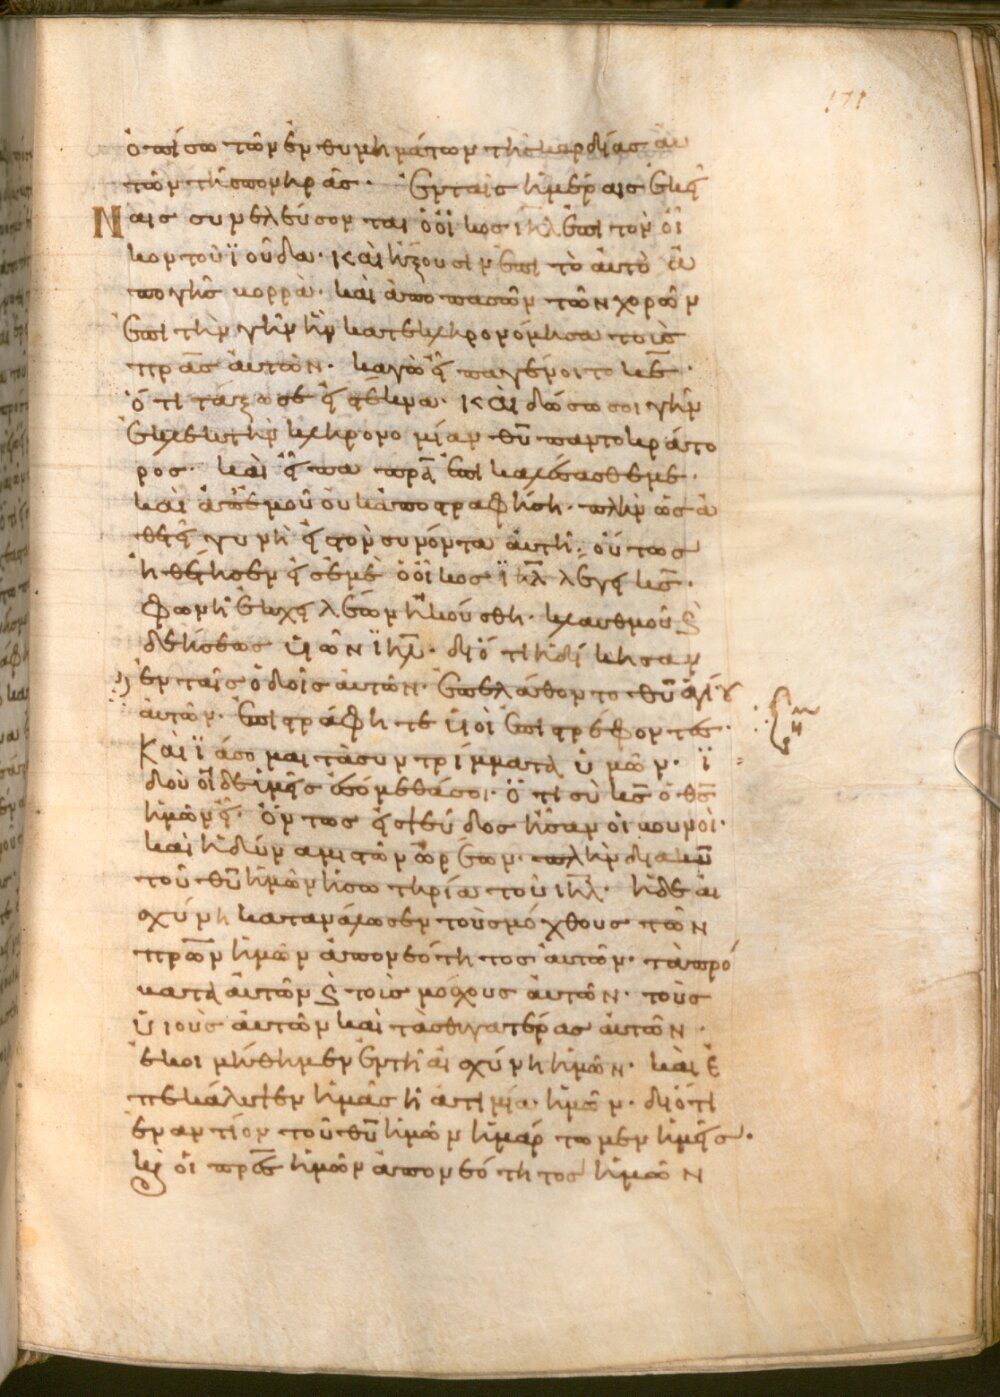 171
ὀπίσω τῶν ἐνθυμημάτων τῆς καρδίας αὐ
τῶν τῆς πονηρᾶς· Ἐν ταῖς ἡμέραις ἐκεί
Ναις συνελεύσονται ὁ οἶκος ἰηλ ἐπὶ τὸν οἶ
κον τοῦ ἰούδα· καὶ ἥξουσιν ἐπὶ τὸ αὐτὸ ἀ
πο γῆς βορρᾶ· καὶ ἀπὸ πασῶν τῶν χορῶν
ἐπὶ τὴν γῆν ἣν κατεκληρονόμησα τοὺς
πρας αὐτῶν· καγὼ εἶπα γένοιτο κε·
ὅτι τάξω σε εἰς τέκνα· καὶ δώσω σοι γῆν
ἐκλεκτὴν κληρονομίαν θυ παντοκράτο
ρος· καὶ εἶπα πρα ἐπικαλέσασθε με·
καὶ ἀπ ἐμοῦ οὐκ ἀποστραφήση· πλὴν ὡς ἀ
θετεῖ γυνὴ εἰς τὸν συνόντα αὐτῆ· οὕτως
ἠθέτησεν εἰς ἐμὲ ὁ οἶκος ἰηλ λέγει κς·
φωνὴ ἐκ χειλέων ἠκούσθη· κλαυθμοῦ ϗ
δεήσεως υἱῶν ἰηλ· διότι ἠδίκησαν
ἐν ταῖς ὁδοῖς αὐτῶν· ἐπελάθοντο θυ ἁγίου
αὐτῶν· ἐπιστράφητε υἱοὶ ἐπιστρέφοντες·
Καὶ ἰάσομαι τὰ συντρίμματα ὑμῶν· ἰ
δοὺ οἵδε ἡμεῖς ἐσόμεθά σοι· ὅτι σὺ κς ὁ θς
ἡμῶν εἶ· ὄντως εἰς ψεῦδος ἦσαν οἱ βουνοὶ·
καὶ ἡ δύναμις τῶν ὀρέων· πλὴν δια κυ
τοῦ θυ ἡμῶν ἡ σωτηρία τοῦ ἰηλ· ἡ δὲ αἰ
σχύνη κατανάλωσεν τοὺς μόχθους τῶν
πρων ἡμῶν ἀπο νεότητος αὐτῶν· τὰ πρό
βατα αὐτῶν ϗ τοὺς μόσχους αὐτῶν· τοὺς
υἱοὺς αὐτῶν καὶ τὰς θυγατέρας αὐτῶν·
ἐκοιμήθημεν ἐν τῆ αἰσχύνη ἡμῶν· καὶ ἐ
πεκάλυψεν ἡμᾶς ἡ ἀτιμία ἡμῶν· διότι
ἐναντίον τοῦ θυ ἡμῶν ἡμάρτωμεν ἡμεῖς·
ϗ οἱ πρες ἡμῶν ἀπο νεότητος ἡμῶν